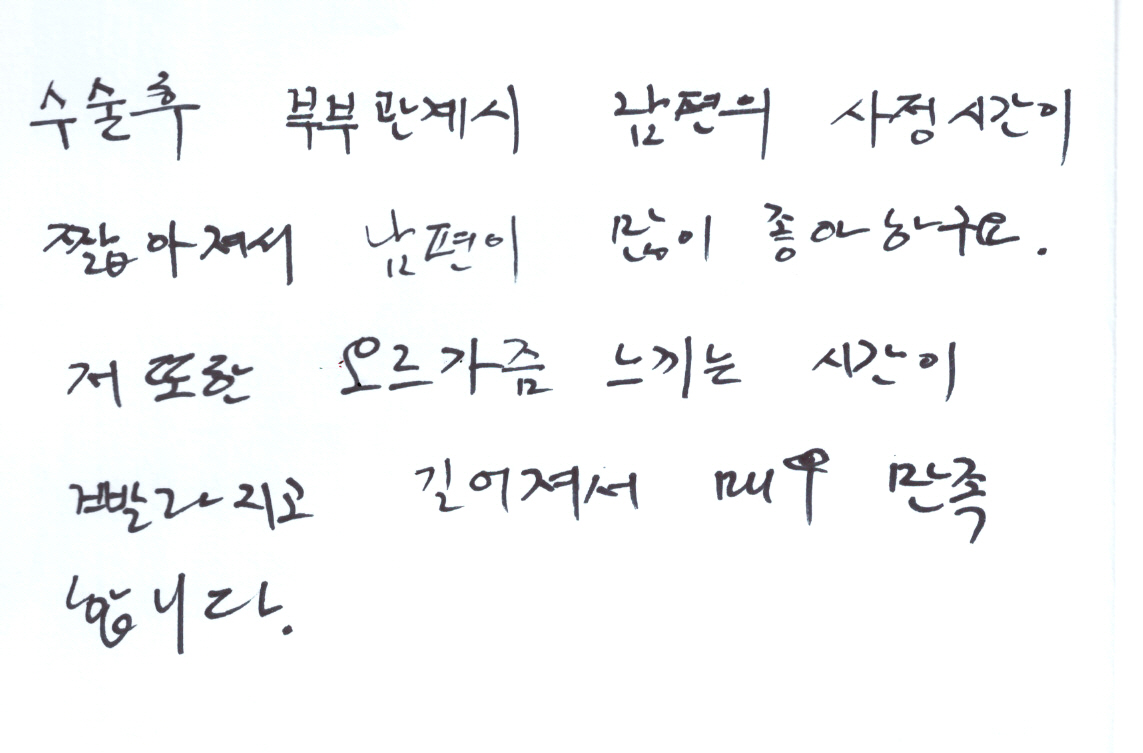 수술후 부부관계시 남편의 사정시간이
짧아져서 남편이 많이 좋아하구요.
저 또한 오르가즘 느끼는 시간이
빨라지고 길어져서 매우 만족
합니다.